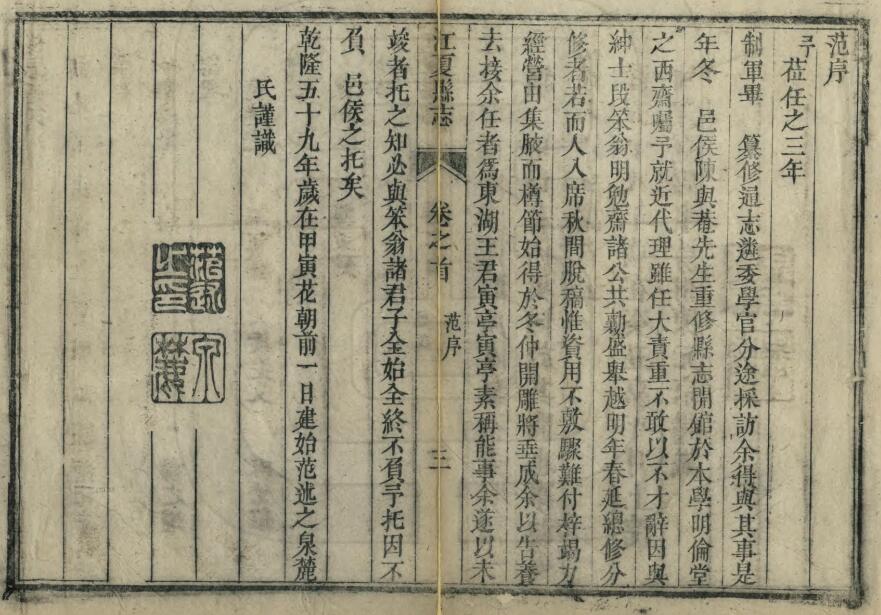 范序
予蒞任之三年
制軍畢　纂修通志遴委學官分途採訪余得與其事是
年冬　邑侯陳與菴先生重修縣志開館於本學明倫堂
之西齋囑予就近代理雖任大責重不敢以不才辭因與
紳士段笨翁明勉齋諸公共勷盛舉越明年春延總修分
修者若而人入席秋間脫稿惟資用不敷驟難付梓竭力
經營由集腋而樽節始得於冬仲開雕將垂成余以告養
去接余任者爲東湖王君寅亭寅亭素稱能事余遂以未
江夏縣志　卷之首　范序　三
竣者托之知必與笨翁諸君子全始全終不負予托因不
負　邑侯之托矣
乾隆五十九年歲在甲寅花朝前一日建始范述之泉麓
氏謹識
范述之印
泉麓